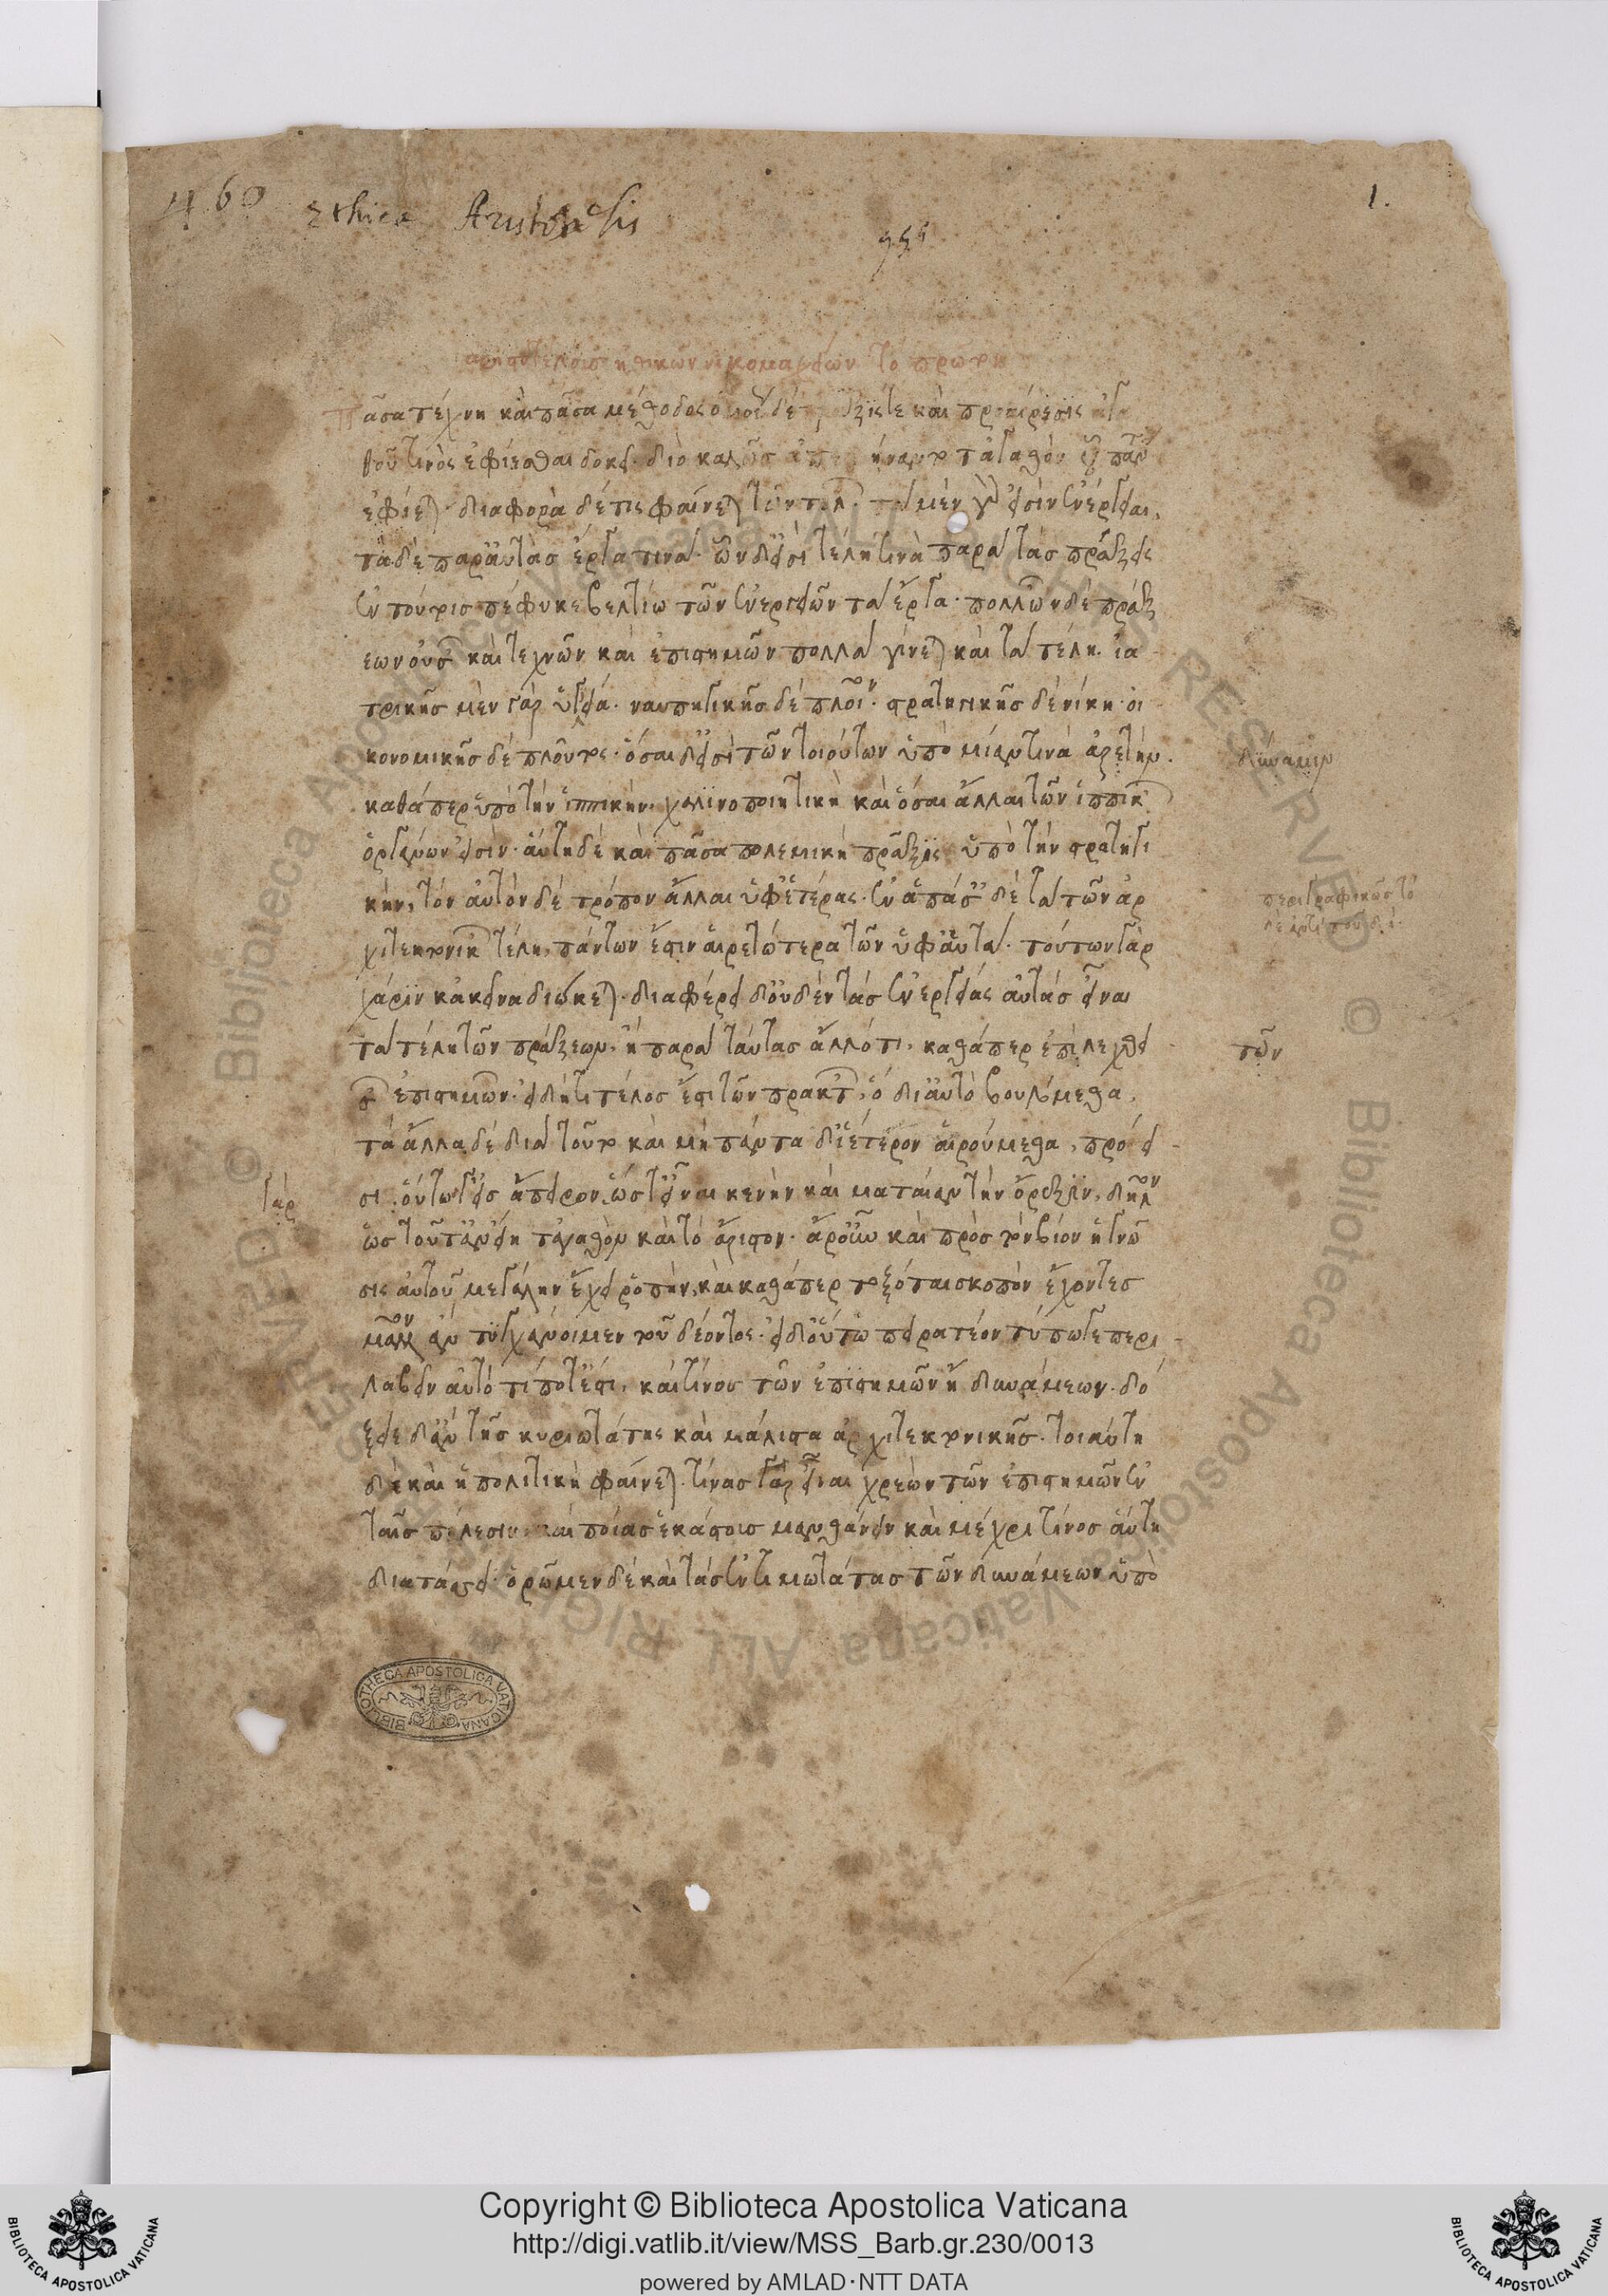 460 Ethica Aristotelis
1.
ἀριστοτέλους ἠθικῶν νικομαχείων τὸ πρῶτον
Πᾶσα τέχνη καὶ πᾶσα μέθοδος ὁμοῦ δὲ πρᾶξίς τε καὶ προαίρεσις ἀγα
θοῦ τινὸς ἐφίεσθαι δοκεῖ· διὸ καλῶς ἀπεφήναντο τἀγαθὸν οὗ πάντ
ἐφίεται· διαφορὰ δέ τις φαίνεται τῶν τελῶν· τὰ μὲν γάρ εἰσιν ἐνέργειαι,
τὰ δὲ παρ' αὐτὰς ἔργα τινά· ὧν δ' εἰσὶ τέλη τινὰ παρὰ τὰς πράξεις
ἐν τούτοις πέφυκε βελτίω τῶν ἐνεργειῶν τὰ ἔργα· πολλῶν δὲ πράξ
εων οὐσῶν καὶ τεχνῶν καὶ ἐπιστημῶν πολλὰ γίνεται καὶ τὰ τέλη. ἰα
τρικῆς μὲν γὰρ ὑγεία· ναυπηγικῆς δὲ πλοῖον· στρατηγικῆς δὲ νίκη· οἰ
κονομικῆς δὲ πλοῦτος· ὅσαι δ' εἰσὶ τῶν τοιούτων ὑπὸ μίαν τινὰ ἀρετήν.
δύναμιν
καθάπερ ὑπὸ τὴν ἱππικήν, χαλινοποιητικὴ καὶ ὅσαι ἄλλαι τῶν ἱππικῶν
ὀργάνων εἰσίν· αὕτη δὲ καὶ πᾶσα πολεμικὴ πρᾶξις ὑπὸ τὴν στρατηγι
κήν, τὸν αὐτὸν δὲ τρόπον ἄλλαι ὑφ' ἑτέρας· ἐν ἁπάσαις δὲ τὰ τῶν ἀρ
χιτεκτονικῶν τέλη, πάντων ἐστὶν αἱρετώτερα τῶν ὑφ' αὑτά· τούτων γὰρ
χάριν κἀκεῖνα διώκεται· διαφέρει δ' οὐδὲν τὰς ἐνεργείας αὐτὰς εἶναι
τὰ τέλη τῶν πράξεων, ἢ παρὰ ταύτας ἄλλό τι, καθάπερ ἐπὶ λεχθει
τῶν
σῶν ἐπιστημῶν· εἰ δή τι τέλος ἐστὶ τῶν πρακτῶν, ὃ δι' αὐτὸ βουλόμεθα,
τὰ ἄλλα δὲ διὰ τοῦτο καὶ μὴ πάντα δι' ἕτερον αἱρούμεθα, πρόει
γάρ
σι οὕτω γ' εἰς ἄπειρον, ὥστ' εἶναι κενὴν καὶ ματαίαν τὴν ὄρεξιν, δῆλον
ὡς τοῦτ' ἂν εἴη τἀγαθὸν καὶ τὸ ἄριστον· ἆρ' οὖν καὶ πρὸς τὸν βίον ἡ γνῶ
σις αὐτοῦ μεγάλην ἔχει ῥοπήν, καὶ καθάπερ τοξόται σκοπὸν ἔχοντες
μᾶλλον ἂν τυγχάνοιμεν τοῦ δέοντος· εἰ δ' οὕτω πειρατέον τύπω γε περι
λαβεῖν αὐτὸ τί ποτ' ἐστί, καὶ τίνος τῶν ἐπιστημῶν ἢ δυνάμεων. δό
ξειε δ' ἂν τῆς κυριωτάτης καὶ μάλιστα ἀρχιτεκτονικῆς· τοιαύτη
δὲ καὶ ἡ πολιτικὴ φαίνεται· τίνας γὰρ εἶναι χρεὼν τῶν ἐπιστημῶν ἐν
ταῖς πόλεσιν, καὶ ποίας ἑκάστοις μανθάνειν καὶ μέχρι τίνος αὕτη
διατάσσει· ὁρῶμεν δὲ καὶ τὰς ἐντιμωτάτας τῶν δυνάμεων ὑπὸ
BIBLIOTHECA APOSTOLICA VATICANA
Copyright © Biblioteca Apostolica Vaticana
http://digi.vatlib.it/view/MSS_Barb.gr.230/0013
powered by AMLAD·NTT DATA
BIBLIOTECA APOSTOLICA VATICANA
BIBLIOTECA APOSTOLICA VATICANA